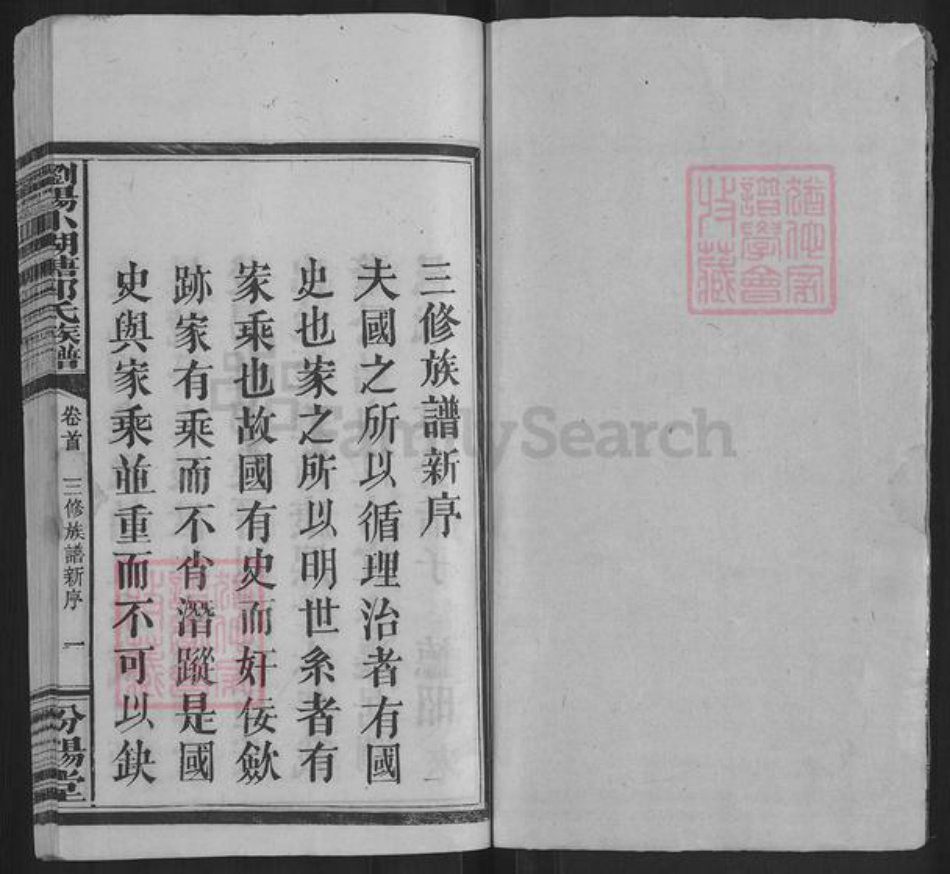 三修族譜新序
夫國之所以循理治者有國
史也家之所以明世系者有
家乘也故國有史而奸佞斂
跡家有乘而不肖潛蹤是國
史與家乘並重而不可以缺
瀏陽小湖塘郭氏族譜
卷首
三修族譜新序
一
汾陽堂
FamilySearch
譜學會
收藏